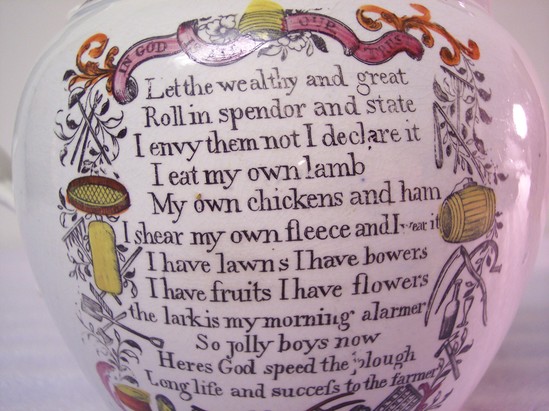 IN GOD IS ALL OUR TRUST
Let the wealthy and great
Roll in spendor and state
I envy them not I declare it
I eat my own lamb
My own chickens and ham
I shear my own fleece and I wear it
I have lawns I have bowers
I have fruits I have flowers
the lark is my morning alarmer
So jolly boys now
Heres God speed the plough
Long life and succeſs to the farmer